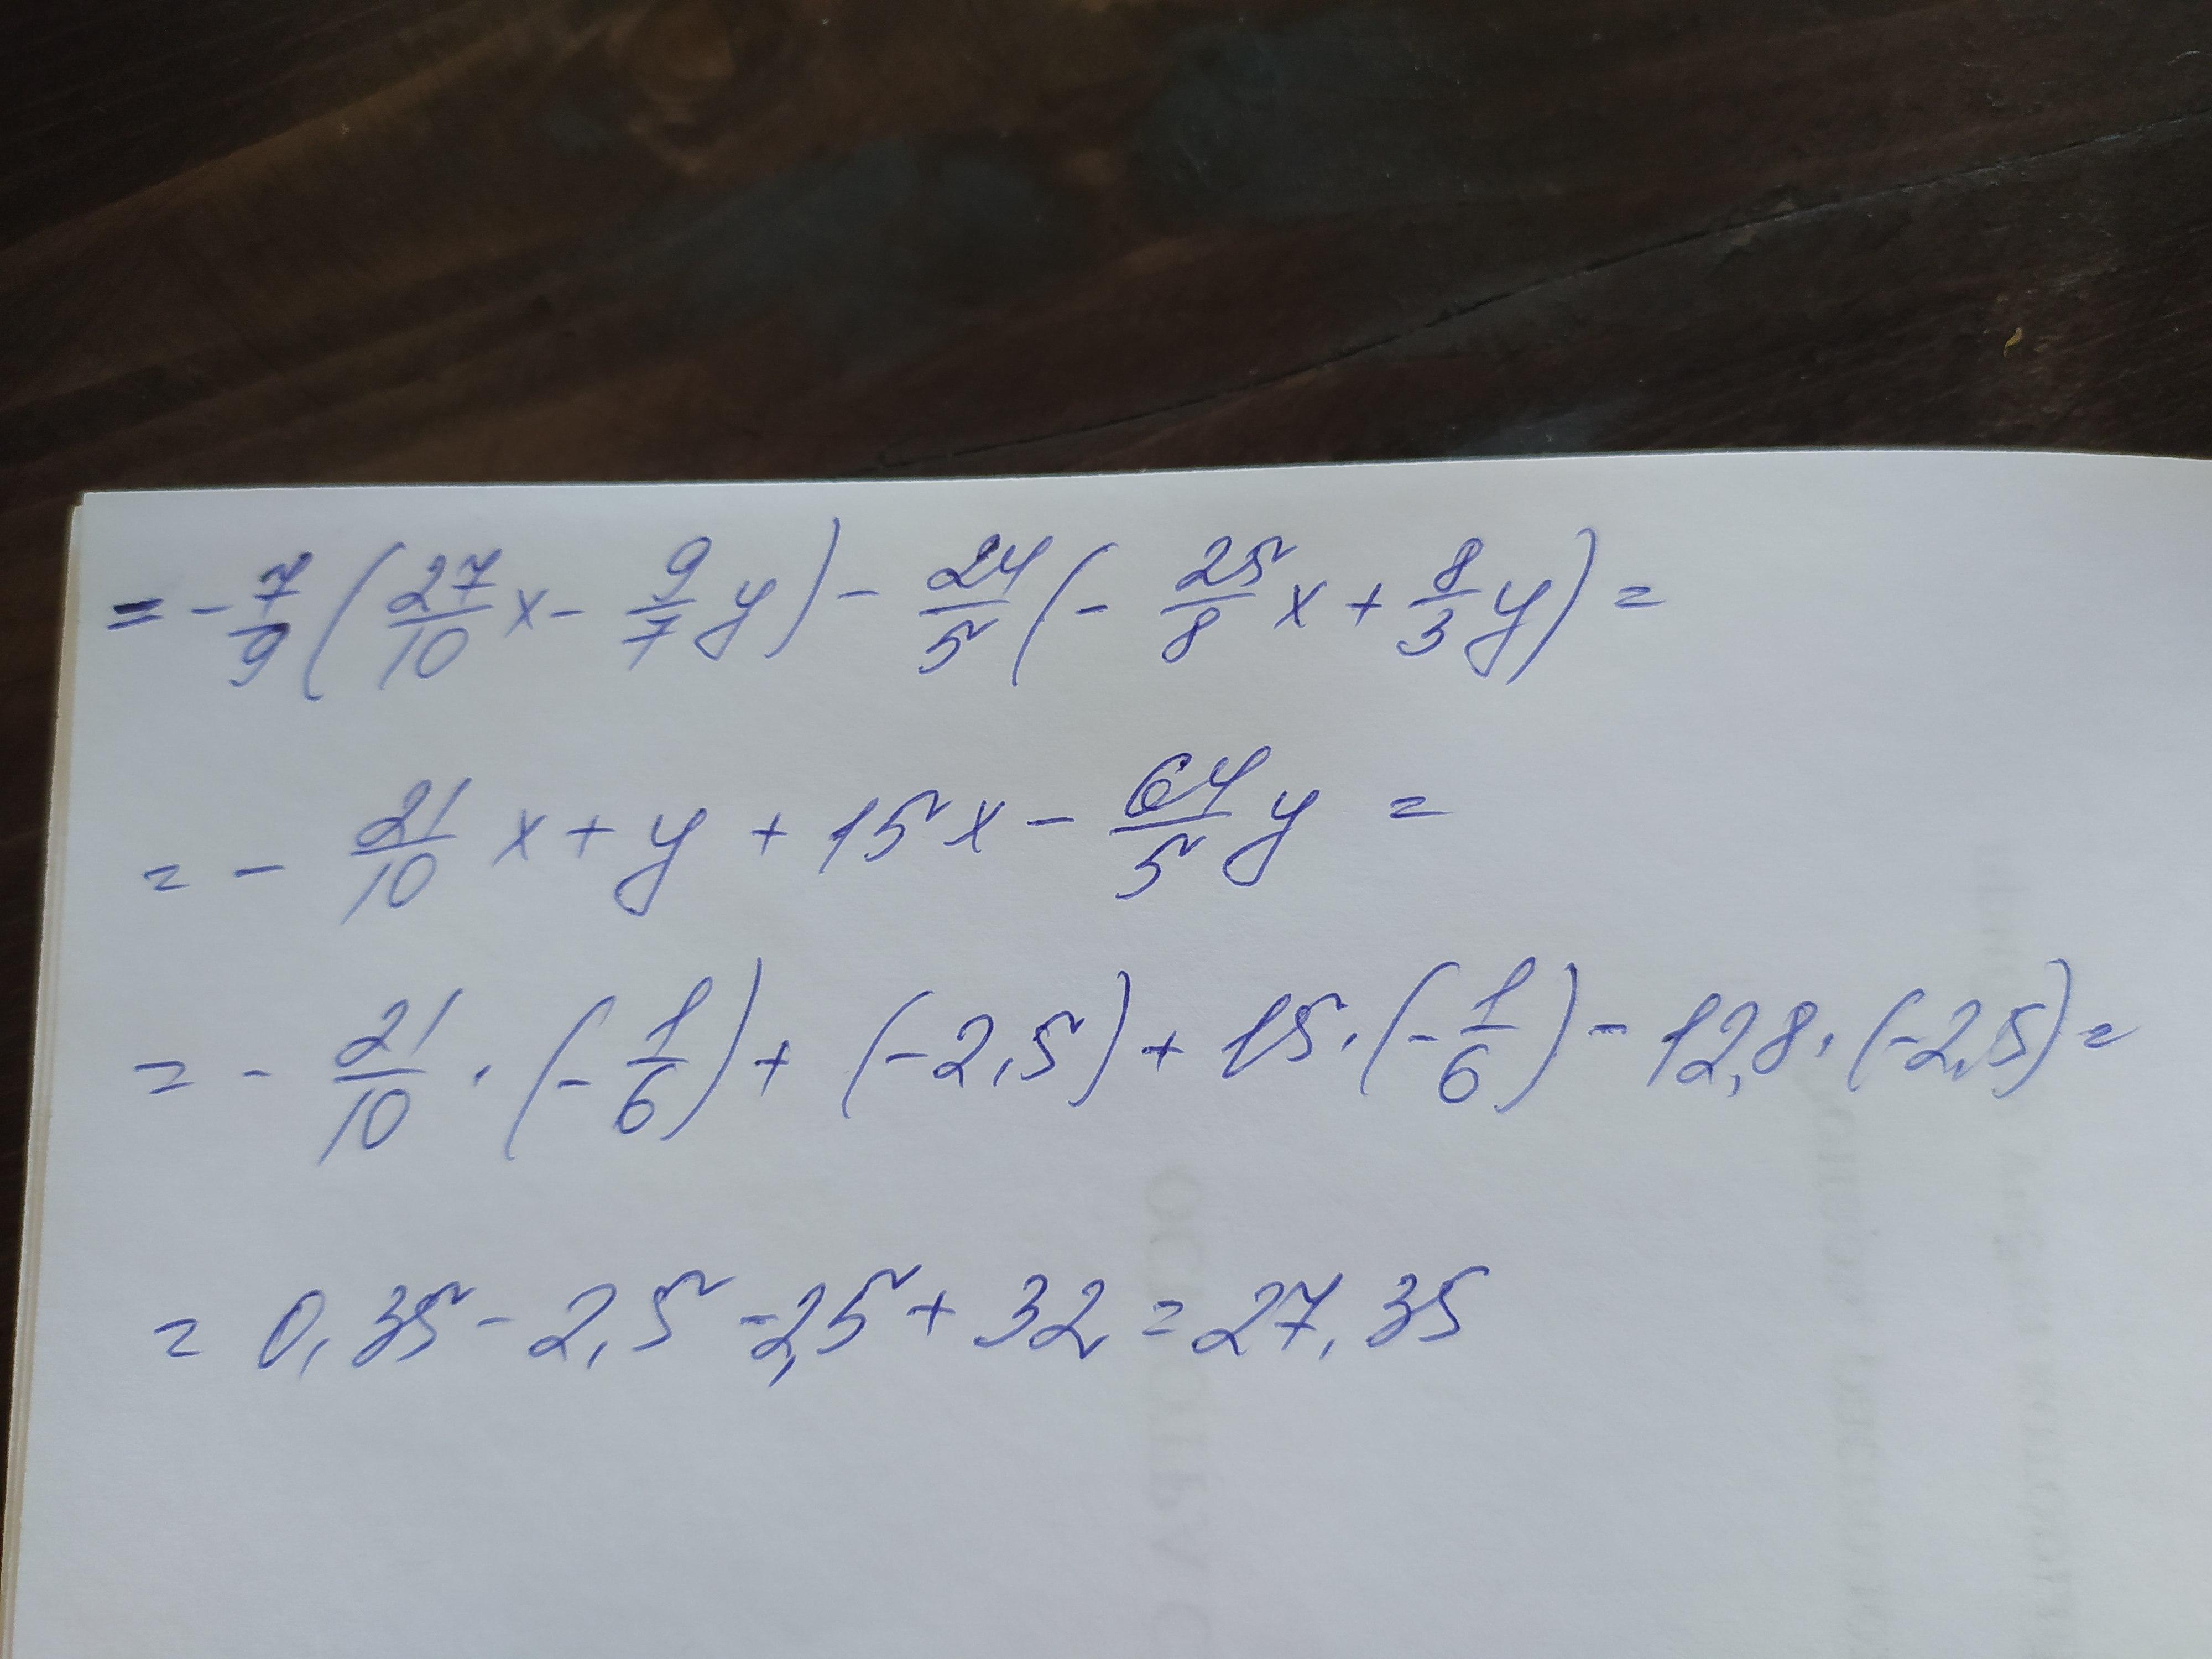 = - 7/9 (27/10 x - 9/7 y) - 24/5 (- 25/8 x + 8/3 y) =
= - 21/10 x + y + 15x - 64/5 y =
= - 21/10 · (- 1/6) + (-2,5) + 15 · (- 1/6) - 12,8 · (-2,5) =
= 0,35 - 2,5 - 2,5 + 32 = 27,35